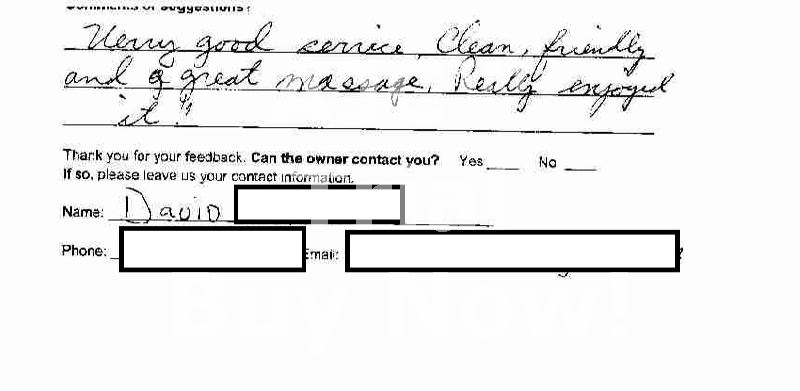 Comments or suggestions?
Verry good service, Clean, friendly
and a great massage, Really enjoyed
it"
Thank you for your feedback. Can the owner contact you? Yes ___ No ___
If so, please leave us your contact information.
Name: David
Phone: Email:
Buy Now!